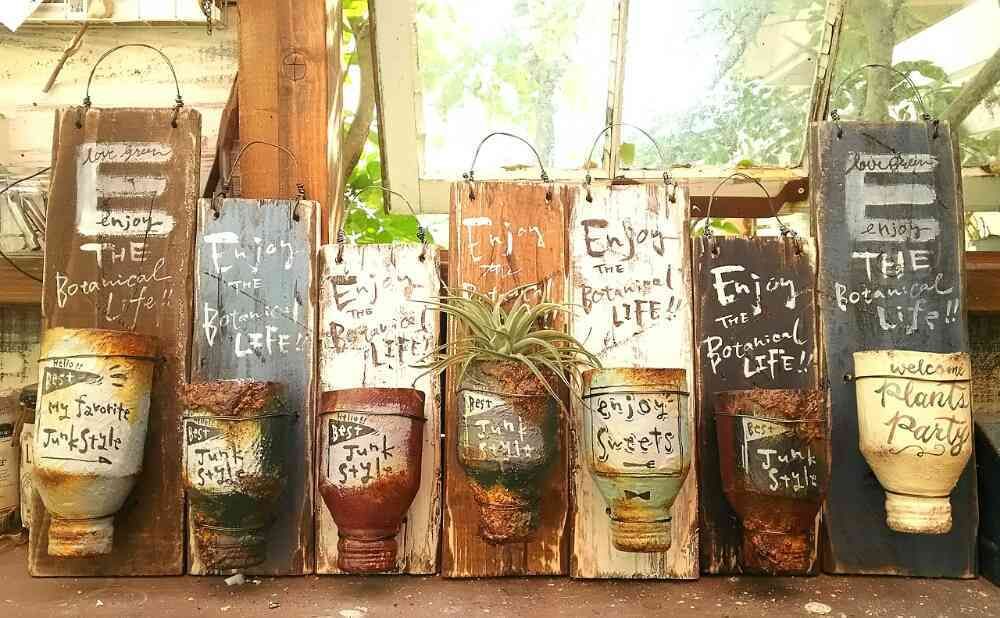 love green
enjoy
THE
Botanical
Life!!
Hello!!
Best
My favorite
JunkStyle
Enjoy
THE
Botanical
LIFE!!
Best
Junk
Style
Enjoy
THE
Botanical
LIFE!!
Hello!!
Best
Junk
Style
Enjoy
THE
Botanical
Best
Junk
Style
Enjoy
THE
Botanical
LIFE!!
enjoy
Sweets
Enjoy
THE
Botanical
LIFE!!
Best
Junk
Style
love green
enjoy
THE
Botanical
Life!!
welcome
Plants
Party